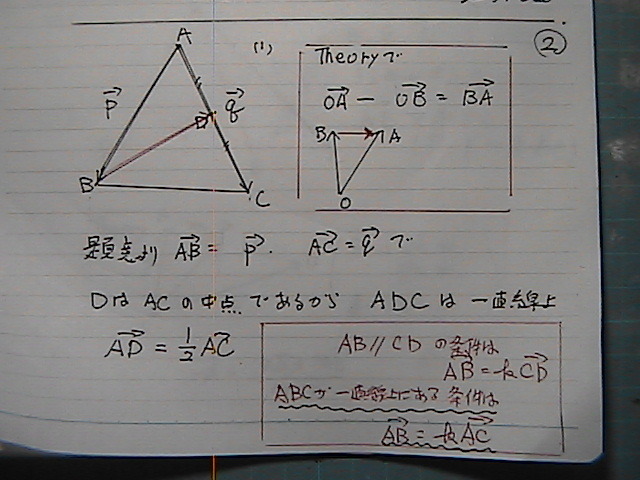 ②
(1)
Theoryで
OA→ - OB→ = BA→
A
p→
q→
D
B
C
B
A
O
題意より AB→ = p→. AC→ = q→ で
DはACの中点であるから ADCは一直線上
AD→ = 1/2 AC→
AB // CD の条件は
AB→ = kCD→
ABCが一直線上にある条件は
AB→ = kAC→